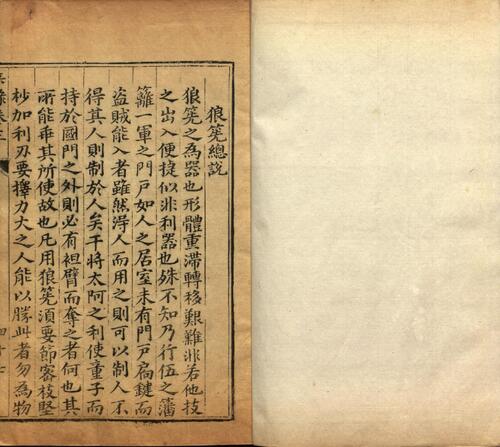 狼筅總說
狼筅之為器也形體重滯轉移艱難非若他技
之出入便捷似非利器也殊不知乃行伍之藩
籬一軍之門戶如人之居室未有門戶扃鍵而
盗賊能入者雖然得人而用之則可以制人不
得其人則制於人矣干將太阿之利使童子而
持於國門之外則必有袒臂而奪之者何也其
所能乖其所使故也凡用狼筅須要節審枝堅
杪加利刃要擇力大之人能以勝此者勿為物